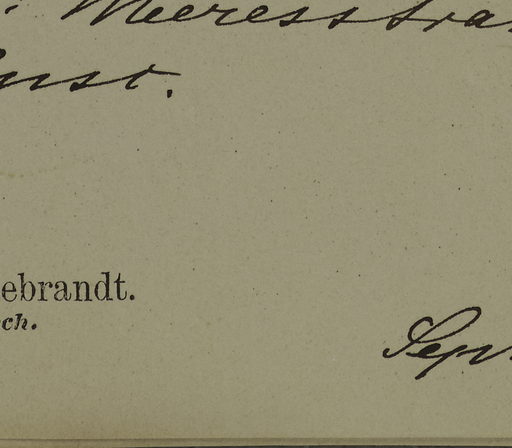 : Meeresstra
unst.
ebrandt.
ch.
Sep